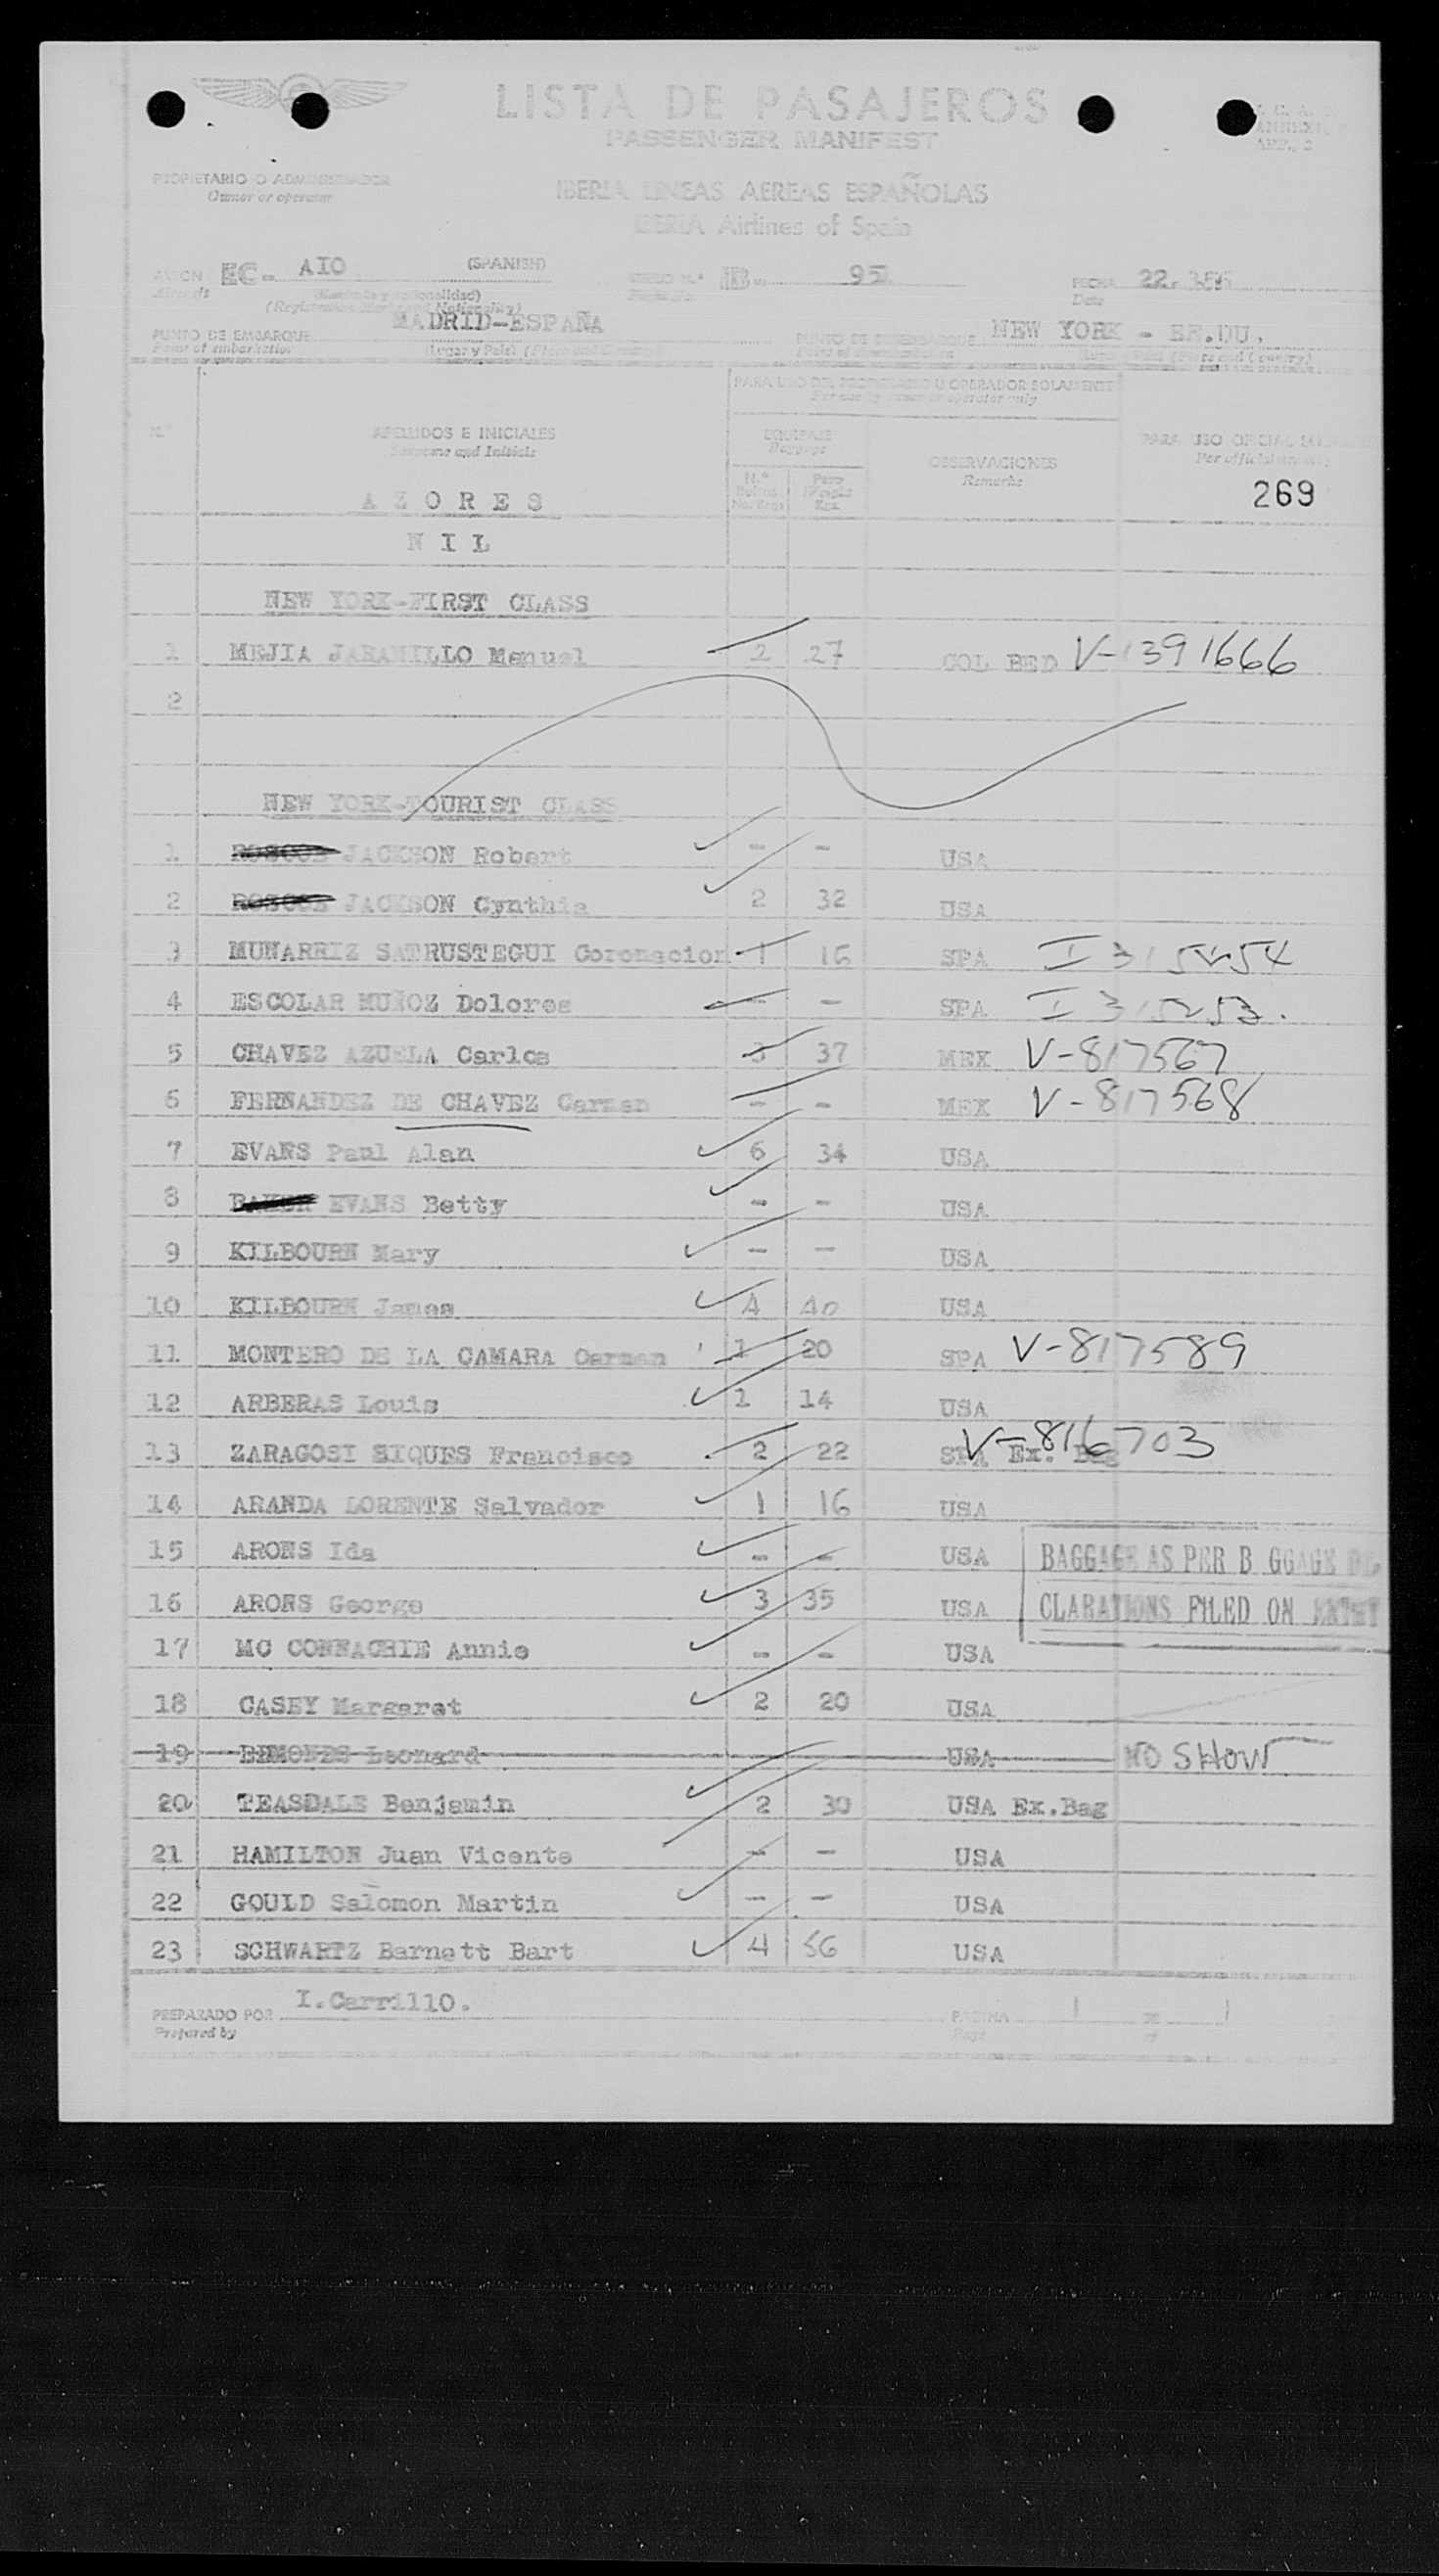 LISTA DE PASAJEROS
PASSENGER MANIFEST
PROPIETARIO O ADMINISTRADOR
Owner or operator
IBERIA LINEAS AEREAS ESPAÑOLAS
IBERIA Airlines of Spain
AVION EC- AIO (SPANISH) IB 95 FECHA 22.
Aircraft Date
MADRID-ESPAÑA NEW YORK - EE.UU.
PUNTO DE EMBARQUE
Point of embarkation Lugar y País)
PARA USO DEL PROPIETARIO U OPERADOR SOLAMENTE
N.º APELLIDOS E INICIALES EQUIPAJE
Surname and Initials Baggage OBSERVACIONES
Remarks
AZORES 269
NIL
NEW YORK-FIRST CLASS
1 MEJIA JARAMILLO Manuel 2 27 COL BED V-1391666
2
NEW YORK-TOURIST CLASS
1 ROSCOE JACKSON Robert - - USA
2 ROSCOE JACKSON Cynthia 2 32 USA
3 MUNARRIZ SATRUSTEGUI Coronacion 1 16 SPA I 315254
4 ESCOLAR MUÑOZ Dolores - - SPA I 315253.
5 CHAVEZ AZUELA Carlos 3 37 MEX V-817567
6 FERNANDEZ DE CHAVEZ Carmen - - MEX V-817568
7 EVANS Paul Alan 6 34 USA
8 EVANS Betty - - USA
9 KILBOURN Mary - - USA
10 KILBOURN James 4 40 USA
11 MONTERO DE LA CAMARA Carmen 1 20 SPA V-817589
12 ARBERAS Louis 1 14 USA
13 ZARAGOSI SIQUES Francisco 2 22 SPA Ex. Bag V-816703
14 ARANDA LORENTE Salvador 1 16 USA
15 ARONS Ida - - USA BAGGAGE AS PER B GGAGE DE
16 ARONS George 3 35 USA CLARATIONS FILED ON ENTRY
17 MC CONNACHIE Annie - - USA
18 CASEY Margaret 2 20 USA
19 Leonard USA NO SHOW
20 TEASDALE Benjamin 2 30 USA Ex.Bag
21 HAMILTON Juan Vicente - - USA
22 GOULD Salomon Martin - - USA
23 SCHWARTZ Barnett Bart 4 56 USA
PREPARADO POR I.Carrillo. PAGINA 1 de 1
Prepared by Page of